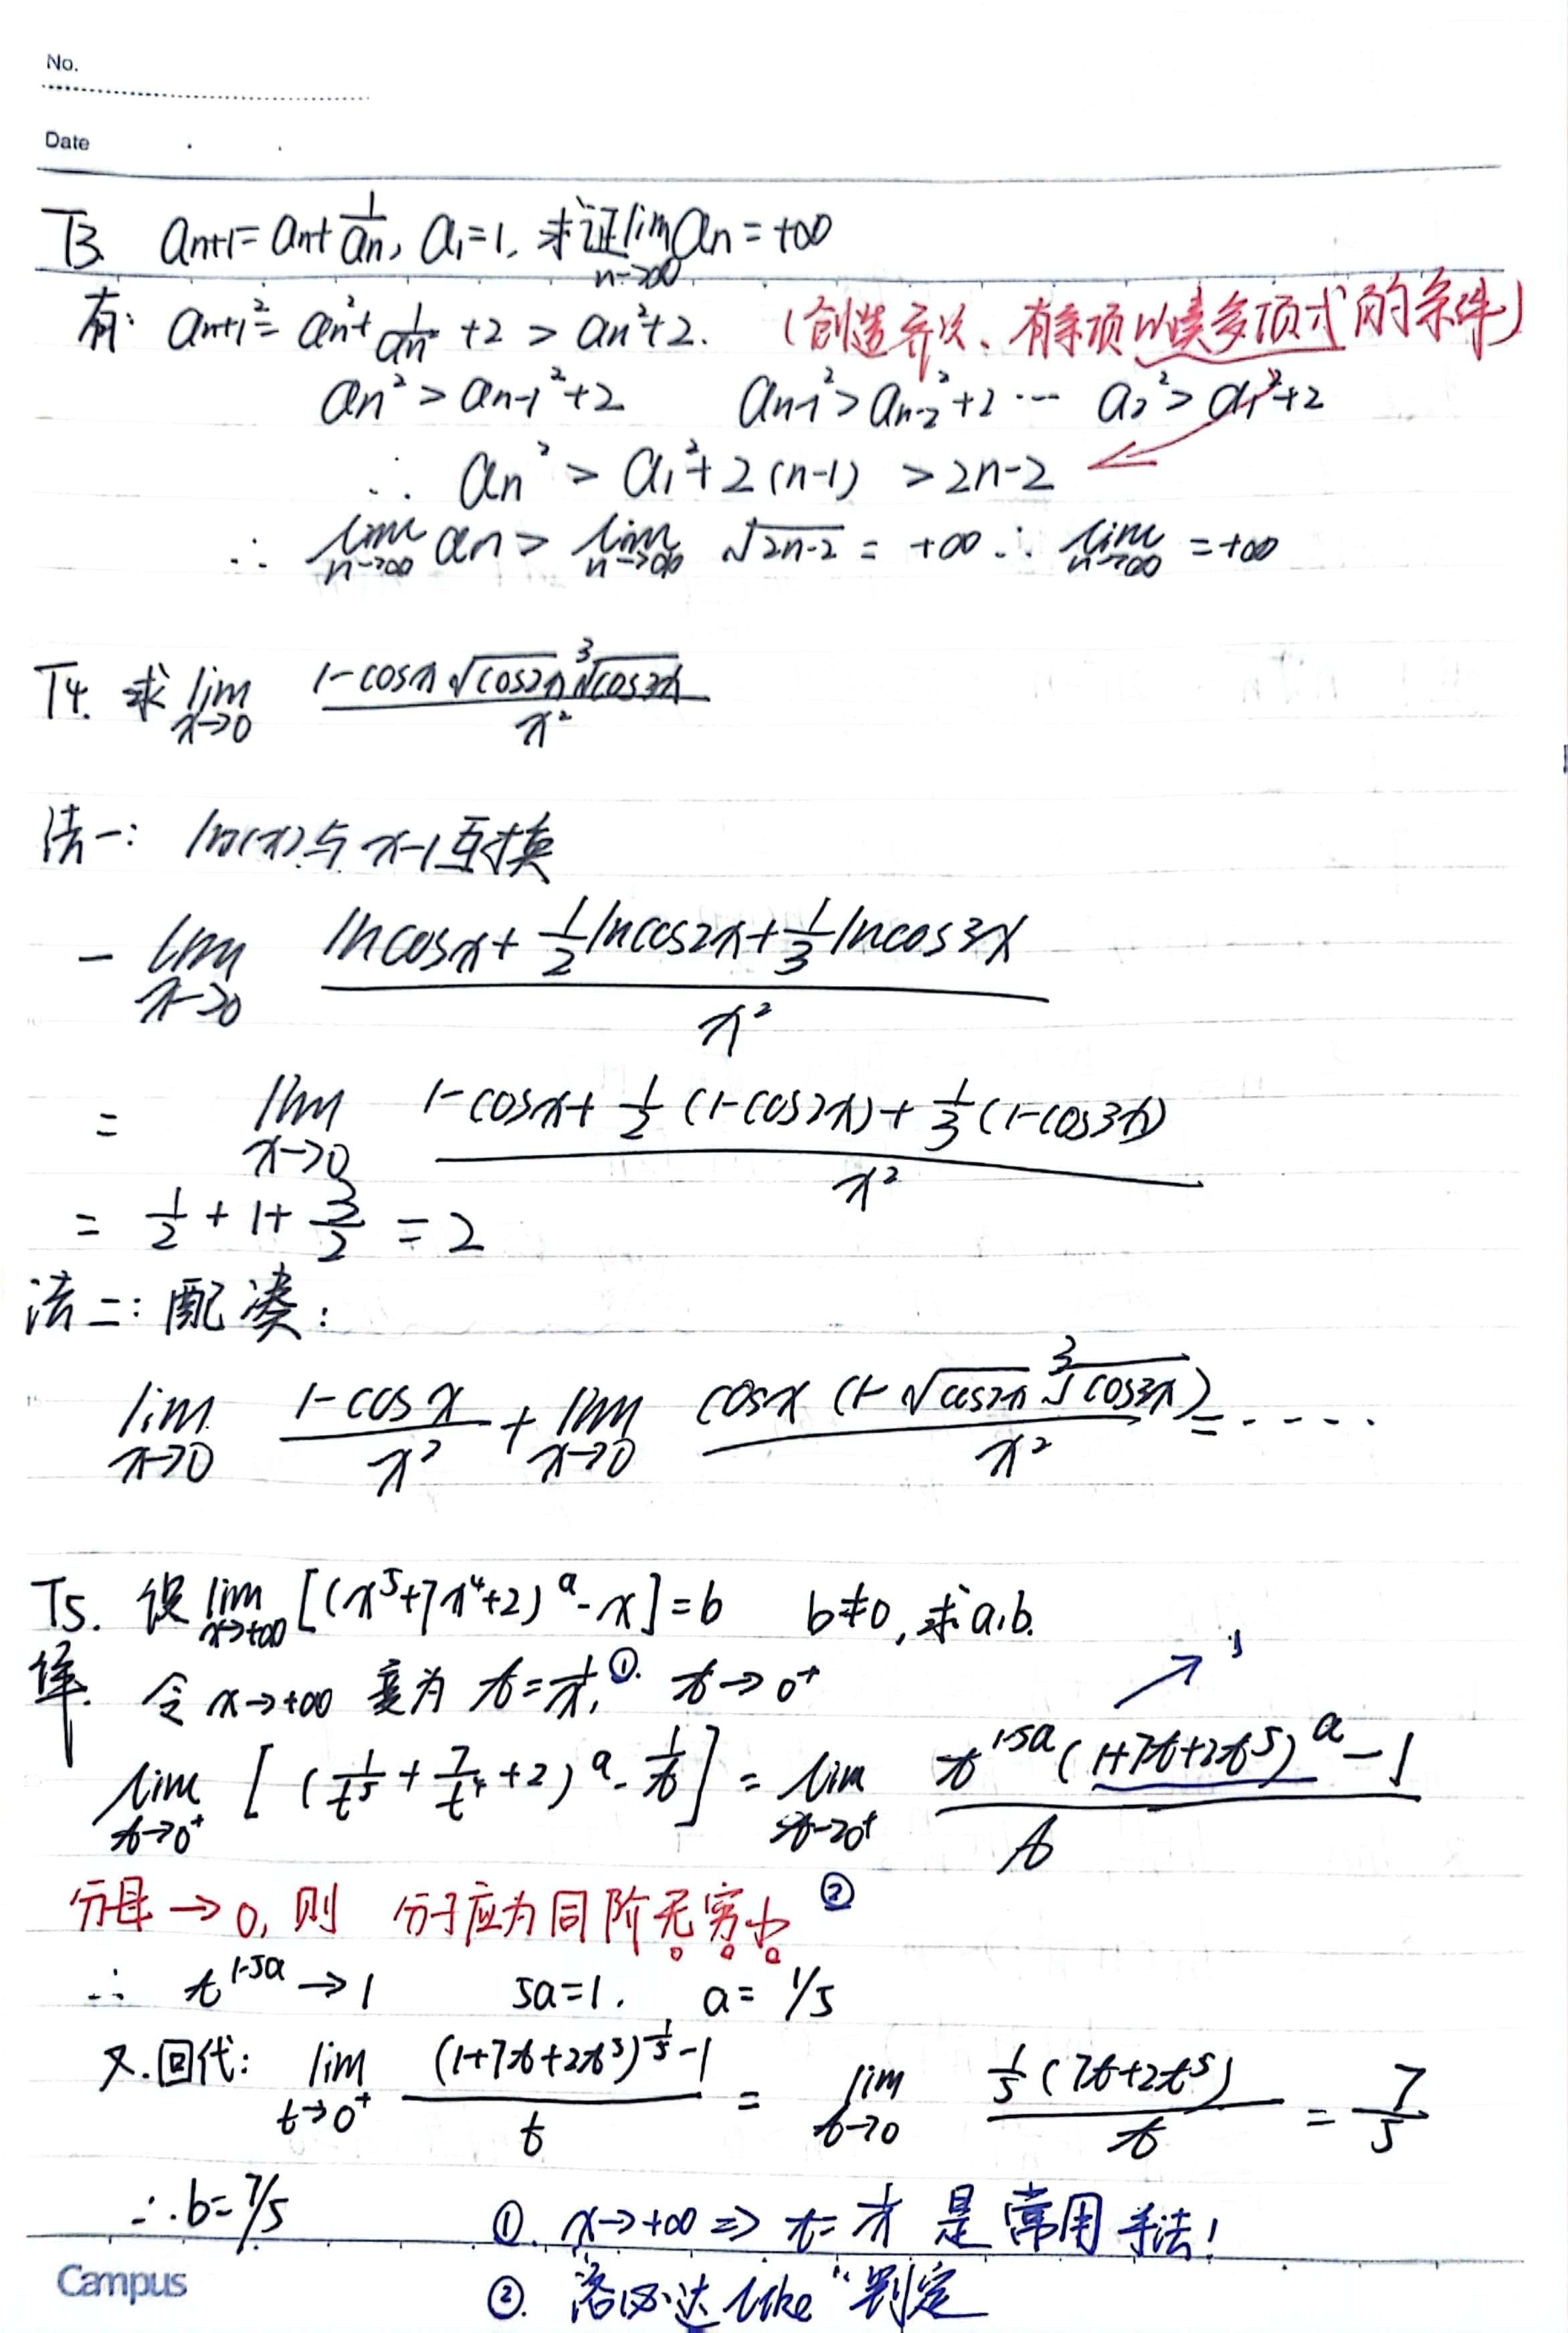 No.
Date
T3. aₙ₊₁=aₙ+1/aₙ, a₁=1, 求证 lim_{n→∞} aₙ=+∞
有: aₙ₊₁²=aₙ²+1/aₙ²+2 > aₙ²+2. (创造齐次、有常项以凑多项式的条件)
aₙ²>aₙ₋₁²+2 aₙ₋₁²>aₙ₋₂²+2 … a₂²>a₁²+2
∴ aₙ² > a₁²+2(n-1) >2n-2
∴ lim_{n→∞} aₙ > lim_{n→∞} √(2n-2) = +∞ ∴ lim_{n→∞} =+∞
T4. 求 lim_{x→0} (1-cosx √(cos2x) ∛(cos3x))/x²
法一: ln(x)与x-1互换
- lim_{x→0} (lncosx+1/2 lncos2x+1/3 lncos3x)/x²
= lim_{x→0} (1-cosx+1/2(1-cos2x)+1/3(1-cos3x))/x²
= 1/2+1+3/2 =2
法二: 配凑:
lim_{x→0} (1-cosx)/x² + lim_{x→0} (cosx(1-√(cos2x) ∛(cos3x)))/x² =-----
T5. 设 lim_{x→+∞} [(x⁵+7x⁴+2)ᵃ-x]=b b≠0, 求a,b.
解. 令x→+∞ 变为 t=1/x,① t→0⁺
→1
lim_{t→0⁺} [(1/t⁵+7/t⁴+2)ᵃ-1/t] = lim_{t→0⁺} (t^{1-5a}(1+7t+2t⁵)ᵃ-1)/t
分母→0, 则 分子应为同阶无穷小 ②
∴ t^{1-5a}→1 5a=1. a=1/5
又.回代: lim_{t→0⁺} ((1+7t+2t⁵)^{1/5}-1)/t = lim_{t→0} (1/5(7t+2t⁵))/t = 7/5
∴b=7/5
①. x→+∞ ⇒ t=1/x 是常用手法!
Campus
②. 洛必达like“判定